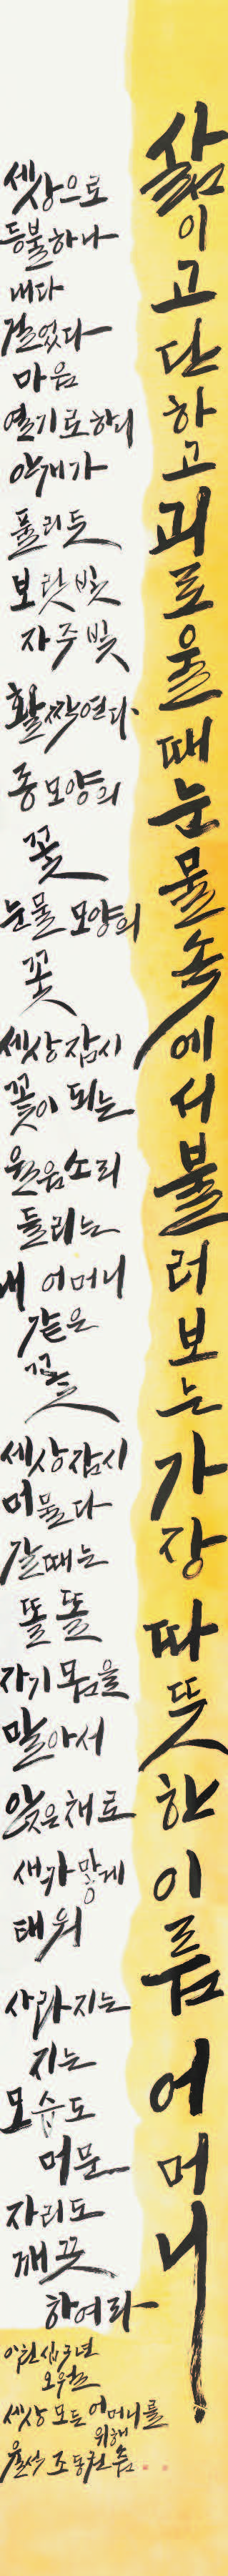 삶이 고단하고 괴로울 때 눈물 속에서 불러보는 가장 따뜻한 이름 어머니
세상으로
등불 하나
내다
걸었다
마음
열기로 하니
안개가
풀리듯
보랏빛
자주빛
활짝 연다
종 모양의
꽃
눈물 모양의
꽃
세상 잠시
꽃이 되는
웃음소리
들리는
내 어머니
같은
꽃
세상 잠시
머물다
갈 때는
똘똘
자기 몸을
말아서
앉은 채로
새카맣게
태워
사라지는
지는
모습도
머문
자리도
깨끗
하여라
이천십구년
오월
세상 모든 어머니를
위해
조동권 씀